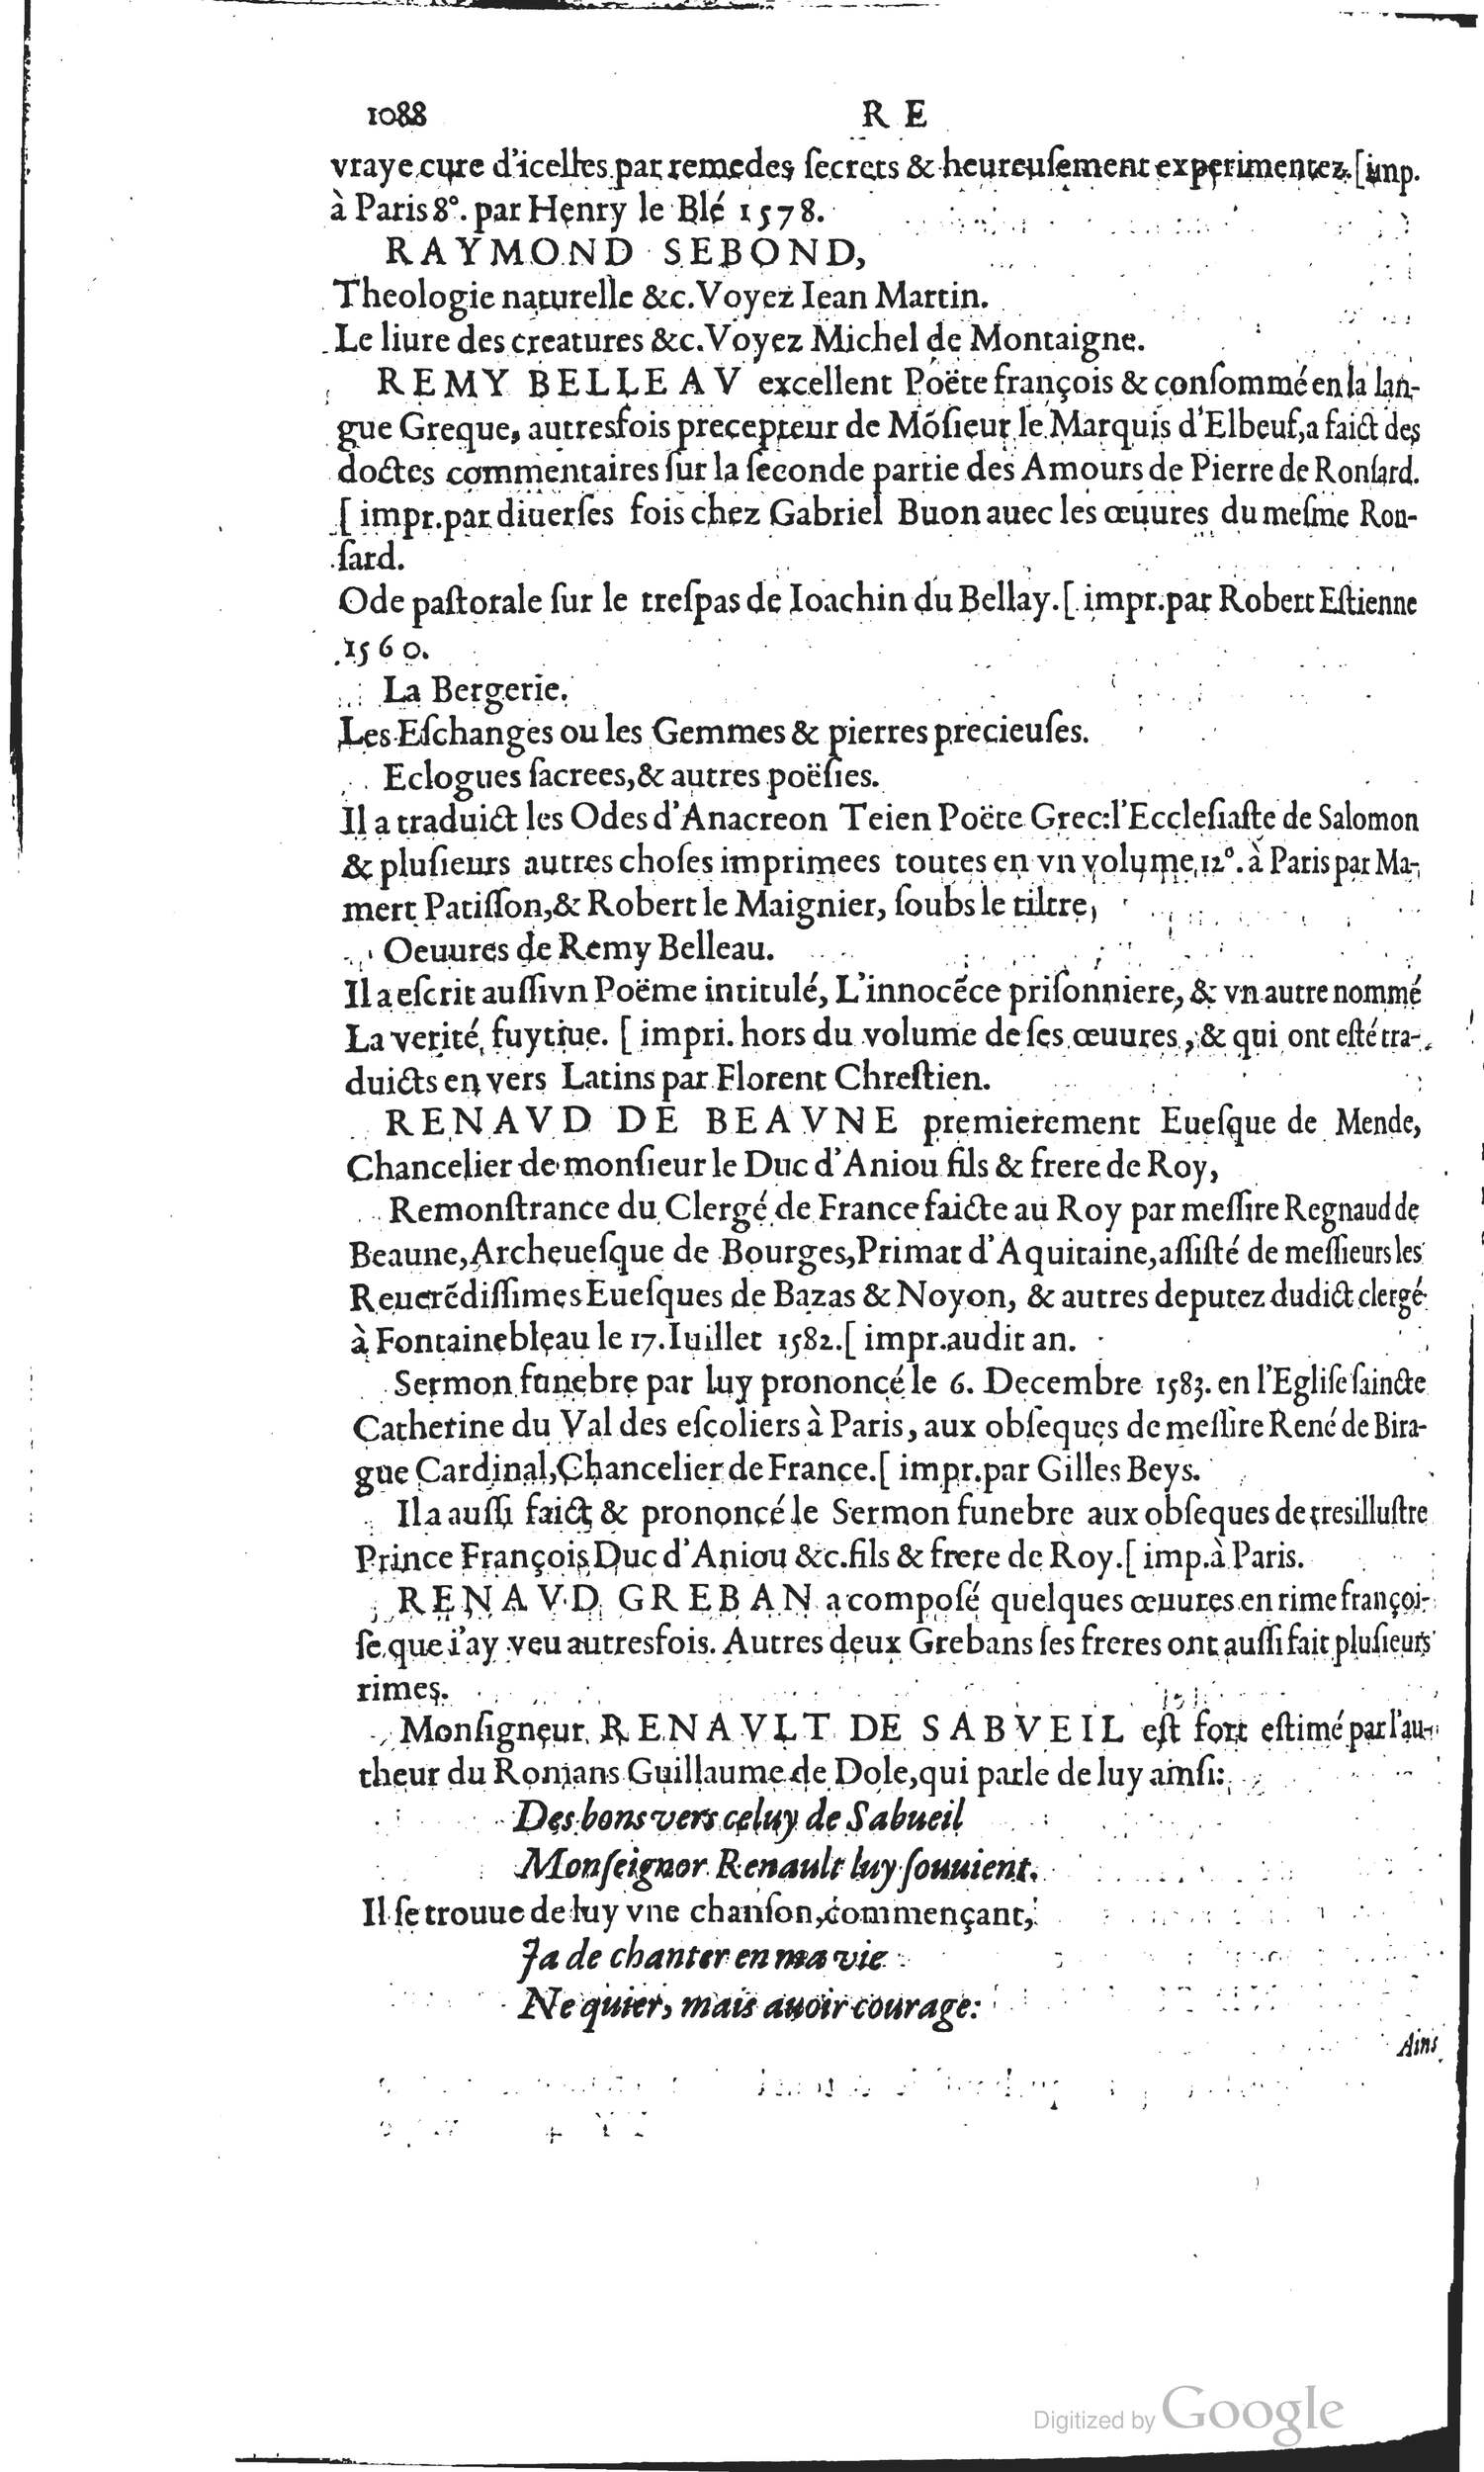 1088 R E
vraye cure d'icelles par remedes ſecrets & heureuſement experimentez. [imp.
à Paris 8°. par Henry le Blé 1578.
RAYMOND SEBOND,
Theologie naturelle &c. Voyez Iean Martin.
Le liure des creatures &c. Voyez Michel de Montaigne.
REMY BELLEAV excellent Poëte françois & conſommé en la lan-
gue Greque, autresfois precepteur de Mõſieur le Marquis d'Elbeuf, a faict des
doctes commentaires ſur la ſeconde partie des Amours de Pierre de Ronſard.
[ impr. par diuerſes fois chez Gabriel Buon auec les œuures du meſme Ron-
ſard.
Ode paſtorale ſur le treſpas de Ioachin du Bellay. [ impr. par Robert Eſtienne
1560.
La Bergerie.
Les Eſchanges ou les Gemmes & pierres precieuſes.
Eclogues ſacrees, & autres poëſies.
Il a traduict les Odes d'Anacreon Teien Poëte Grec: l'Eccleſiaſte de Salomon
& pluſieurs autres choſes imprimees toutes en vn volume, 12°. à Paris par Ma-
mert Patiſſon, & Robert le Maignier, ſoubs le tiltre,
Oeuures de Remy Belleau.
Il a eſcrit auſſi vn Poëme intitulé, L'innocẽce priſonniere, & vn autre nommé
La verité fuytiue. [ impri. hors du volume de ſes œuures, & qui ont eſté tra-
duicts en vers Latins par Florent Chreſtien.
RENAVD DE BEAVNE premierement Eueſque de Mende,
Chancelier de monſieur le Duc d'Aniou fils & frere de Roy,
Remonſtrance du Clergé de France faicte au Roy par meſſire Regnaud de
Beaune, Archeueſque de Bourges, Primat d'Aquitaine, aſſiſté de meſſieurs les
Reuerẽdiſſimes Eueſques de Bazas & Noyon, & autres deputez dudict clergé
à Fontainebleau le 17. Iuillet 1582. [ impr. audit an.
Sermon funebre par luy prononcé le 6. Decembre 1583. en l'Egliſe ſaincte
Catherine du Val des eſcoliers à Paris, aux obſeques de meſſire René de Bira-
gue Cardinal, Chancelier de France. [ impr. par Gilles Beys.
Il a auſſi faict & prononcé le Sermon funebre aux obſeques de tresilluſtre
Prince François Duc d'Aniou &c. fils & frere de Roy. [ imp. à Paris.
RENAVD GREBAN a compoſé quelques œuures en rime françoi-
ſe que i'ay veu autresfois. Autres deux Grebans ſes freres ont auſſi fait pluſieurs
rimes.
Monſigneur RENAVLT DE SABVEIL eſt fort eſtimé par l'au-
theur du Romans Guillaume de Dole, qui parle de luy ainſi:
Des bons vers celuy de Sabueil
Monſeignor Renault luy ſouuient.
Il ſe trouue de luy vne chanſon, commençant,
Ja de chanter en ma vie
Ne quier, mais auoir courage:
Ains
Digitized by Google